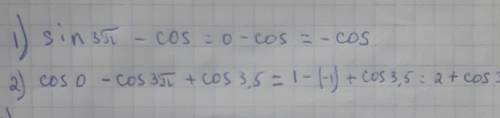 1) sin 3π - cos = 0 - cos = - cos
2) cos 0 - cos 3π + cos 3,5 = 1 - (-1) + cos 3,5 = 2 + cos 3